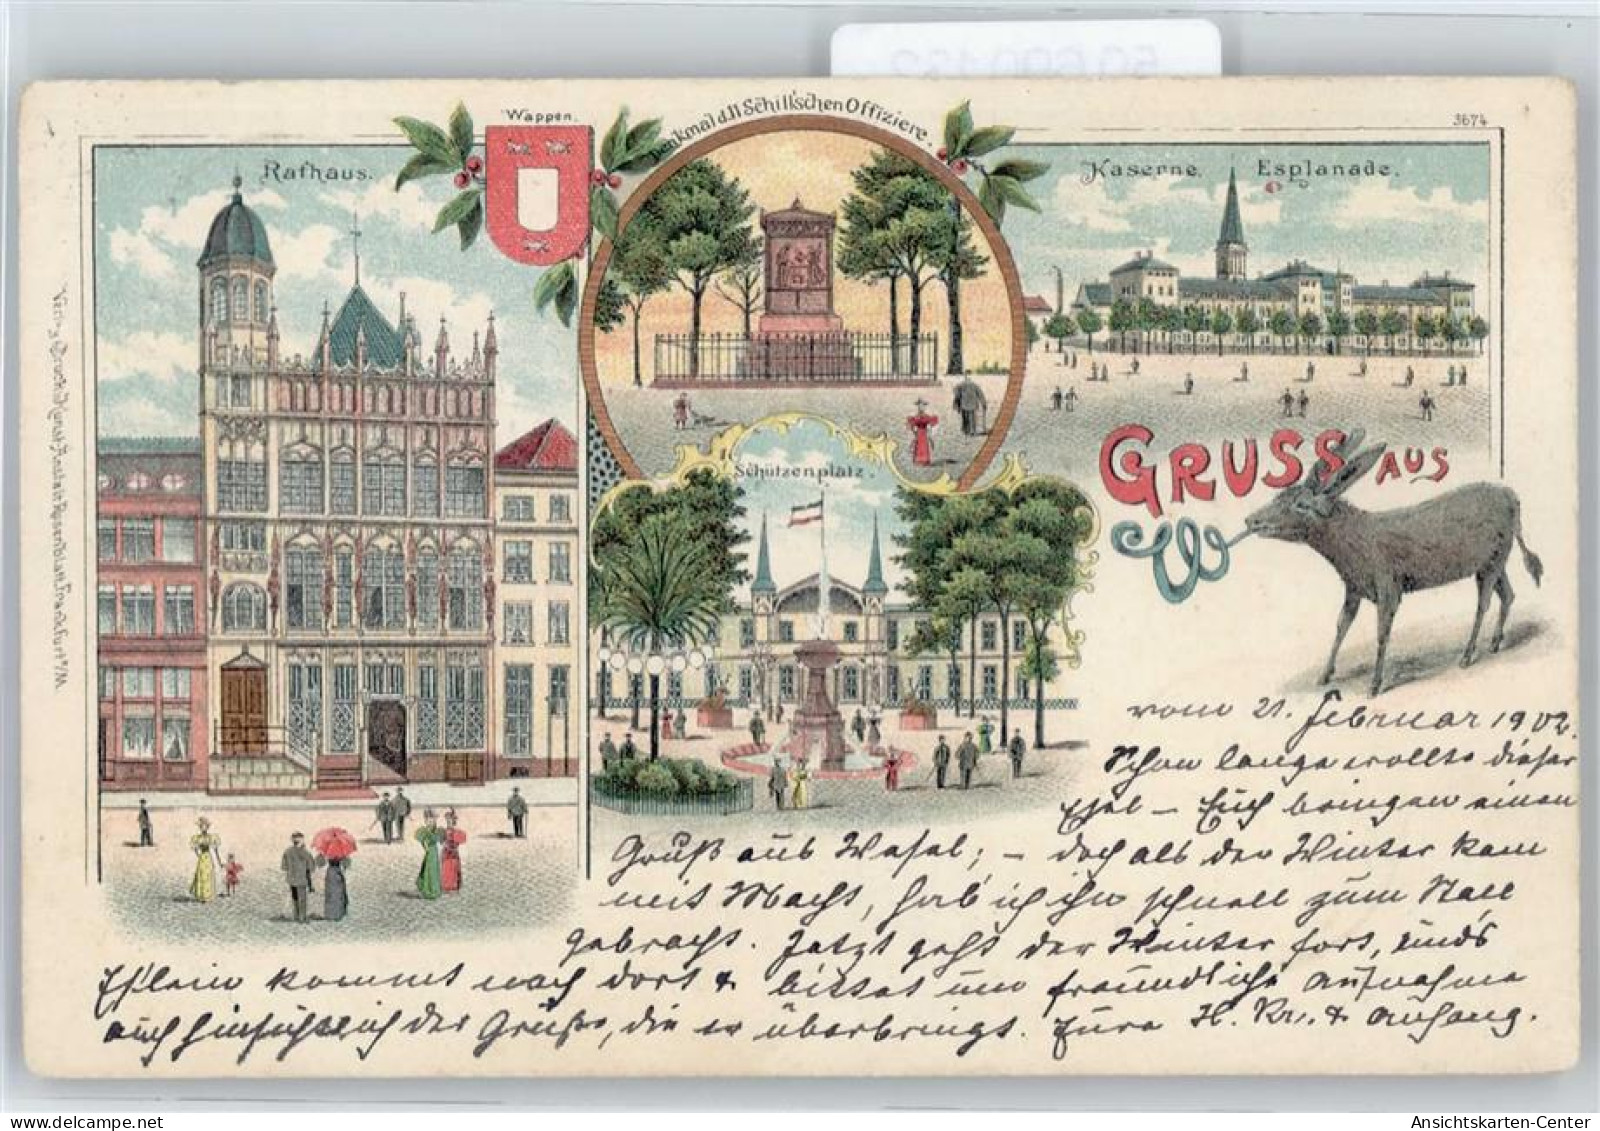 Wappen.
Denkmal d. 11 Schill'schen Offiziere.
3674
Rathaus.
Kaserne. Esplanade.
Schützenplatz.
GRUSS AUS
W
Verlag Druck d. Kunst-Anstalt Rosenblatt Frankfurt a/M.
vom 21. Februar 1902.
Schon lange wollte dieser
Esel – Euch bringen einen
Gruß aus Wesel; – doch als der Winter kam
mit Macht, hab' ich ihn schnell zum Stall
gebracht. Jetzt geht der Winter fort, und's
Es'lein kommt nach dort & bittet um freundliche Aufnahme
auch hinsichtlich der Grüße, die er überbringt. Eure H. Kr. & Anhang.
Ansichtskarten-Center